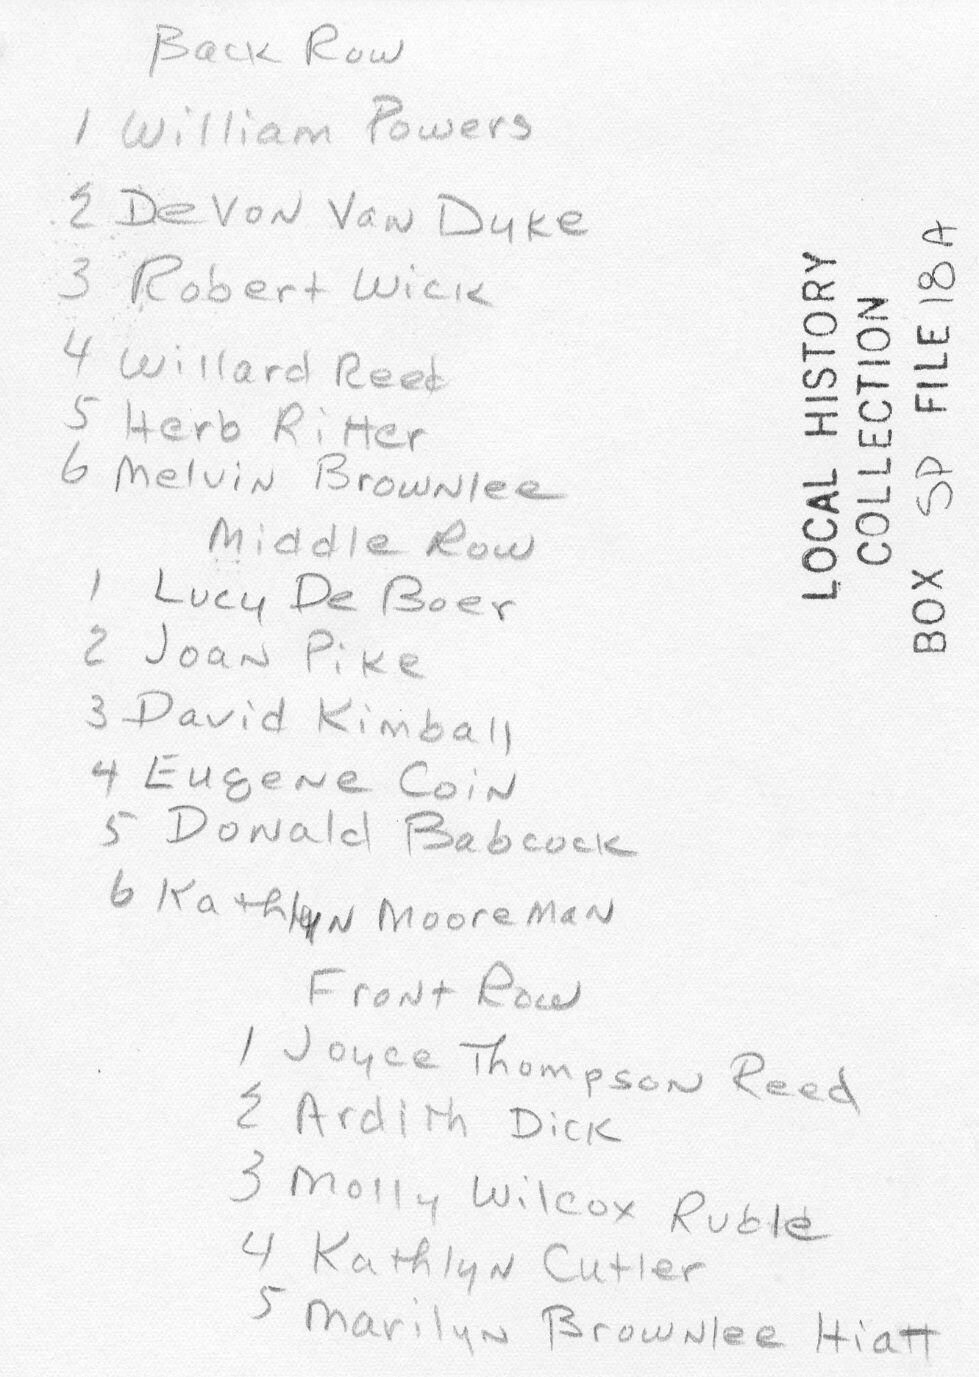 Back Row
1 William Powers
2 DeVon Van Dyke
3 Robert Wick
4 Willard Reed
5 Herb Ritter
6 Melvin Brownlee
Middle Row
1 Lucy De Boer
2 Joan Pike
3 David Kimball
4 Eugene Coin
5 Donald Babcock
6 Kathlyn Mooreman
Front Row
1 Joyce Thompson Reed
2 Ardith Dick
3 Molly Wilcox Ruble
4 Kathlyn Cutler
5 Marilyn Brownlee Hiatt
LOCAL HISTORY
COLLECTION
BOX SP FILE 18A